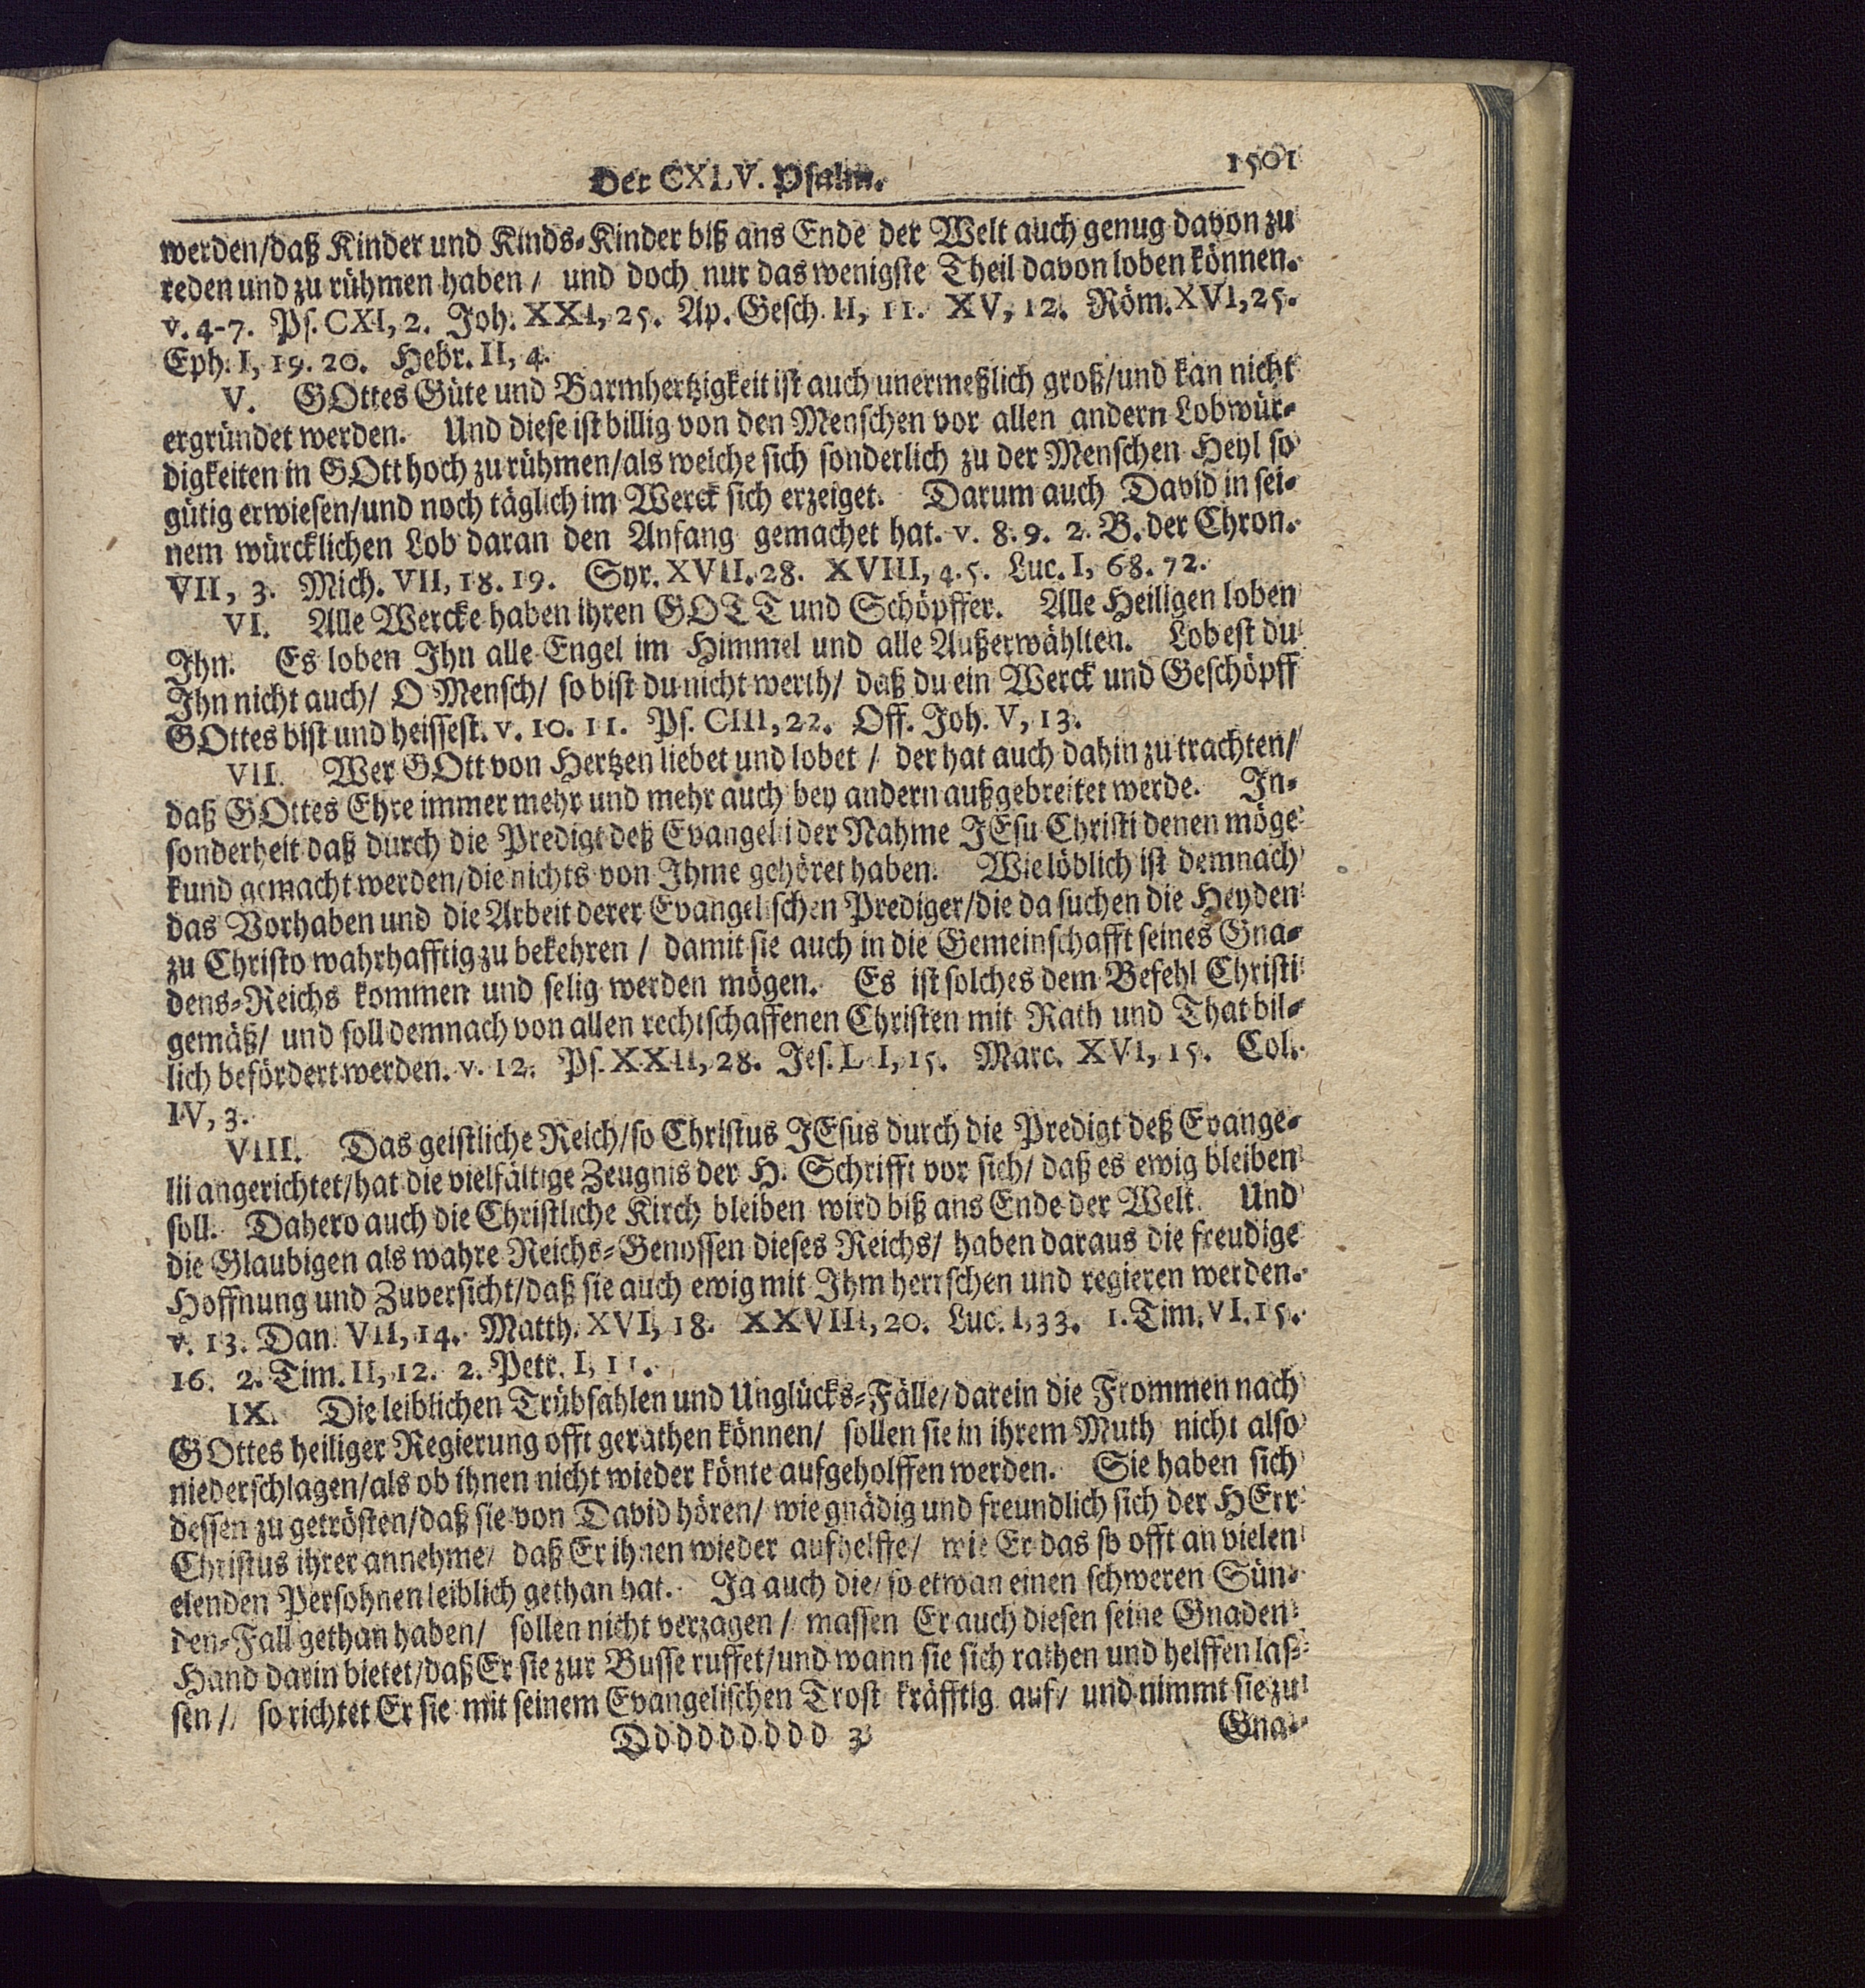 Der CXLV. Psalm. 1501
werden/daß Kinder und Kinds-Kinder biß ans Ende der Welt auch genug davon zu
reden und zu rühmen haben/ und doch nur das wenigste Theil davon loben können.
v. 4-7. Ps. CXI, 2. Joh. XXI, 25. Ap. Gesch. II, 11. XV, 12. Röm. XVI, 25.
Eph. I, 19. 20. Hebr. II, 4.
V. GOttes Güte und Barmhertzigkeit ist auch unermeßlich groß/und kan nicht
ergründet werden. Und diese ist billig von den Menschen vor allen andern Lobwür-
digkeiten in GOtt hoch zu rühmen/als welche sich sonderlich zu der Menschen Heyl so
gütig erwiesen/und noch täglich im Werck sich erzeiget. Darum auch David in sei-
nem würcklichen Lob daran den Anfang gemachet hat. v. 8. 9. 2. B. der Chron.
VII, 3. Mich. VII, 18. 19. Syr. XVII. 28. XVIII, 4. 5. Luc. I, 68. 72.
VI. Alle Wercke haben ihren GOTT und Schöpffer. Alle Heiligen loben
Ihn. Es loben Ihn alle Engel im Himmel und alle Außerwählten. Lobest du
Ihn nicht auch/ O Mensch/ so bist du nicht werth/ daß du ein Werck und Geschöpff
GOttes bist und heissest. v. 10. 11. Ps. CIII, 22. Off. Joh. V, 13.
VII. Wer GOtt von Hertzen liebet und lobet / der hat auch dahin zu trachten/
daß GOttes Ehre immer mehr und mehr auch bey andern außgebreitet werde. In-
sonderheit daß durch die Predigt deß Evangelii der Nahme JEsu Christi denen möge
kund gemacht werden/die nichts von Ihme gehöret haben. Wie löblich ist demnach
das Vorhaben und die Arbeit derer Evangelischen Prediger/die da suchen die Heyden
zu Christo wahrhafftig zu bekehren / damit sie auch in die Gemeinschafft seines Gna-
dens-Reichs kommen und selig werden mögen. Es ist solches dem Befehl Christi
gemäß/ und soll demnach von allen rechtschaffenen Christen mit Rath und That bil-
lich befördert werden. v. 12. Ps. XXII, 28. Jes. LI, 15. Marc. XVI, 15. Col.
IV, 3.
VIII. Das geistliche Reich/so Christus JEsus durch die Predigt deß Evange-
lii angerichtet/hat die vielfältige Zeugnis der H. Schrifft vor sich/ daß es ewig bleiben
soll. Dahero auch die Christliche Kirch bleiben wird biß ans Ende der Welt. Und
die Glaubigen als wahre Reichs-Genossen dieses Reichs/ haben daraus die freudige
Hoffnung und Zuversicht/daß sie auch ewig mit Ihm herrschen und regieren werden.
v. 13. Dan. VII, 14. Matth. XVI, 18. XXVIII, 20. Luc. I, 33. 1. Tim. VI. 15.
16. 2. Tim. II, 12. 2. Petr. I, 11.
IX. Die leiblichen Trübsahlen und Unglücks-Fälle/darein die Frommen nach
GOttes heiliger Regierung offt gerathen können/ sollen sie in ihrem Muth nicht also
niederschlagen/als ob ihnen nicht wieder könte aufgeholffen werden. Sie haben sich
dessen zu getrösten/daß sie von David hören/ wie gnädig und freundlich sich der HErr
Christus ihrer annehme/ daß Er ihnen wieder aufhelffe/ wie Er das so offt an vielen
elenden Persohnen leiblich gethan hat. Ja auch die/ so etwan einen schweren Sün-
den-Fall gethan haben/ sollen nicht verzagen / massen Er auch diesen seine Gnaden
Hand darin bietet/daß Er sie zur Busse ruffet/und wann sie sich rathen und helffen las-
sen / so richtet Er sie mit seinem Evangelischen Trost kräfftig auf/ und nimmt sie zu
Ddddddddd 3 Gna-